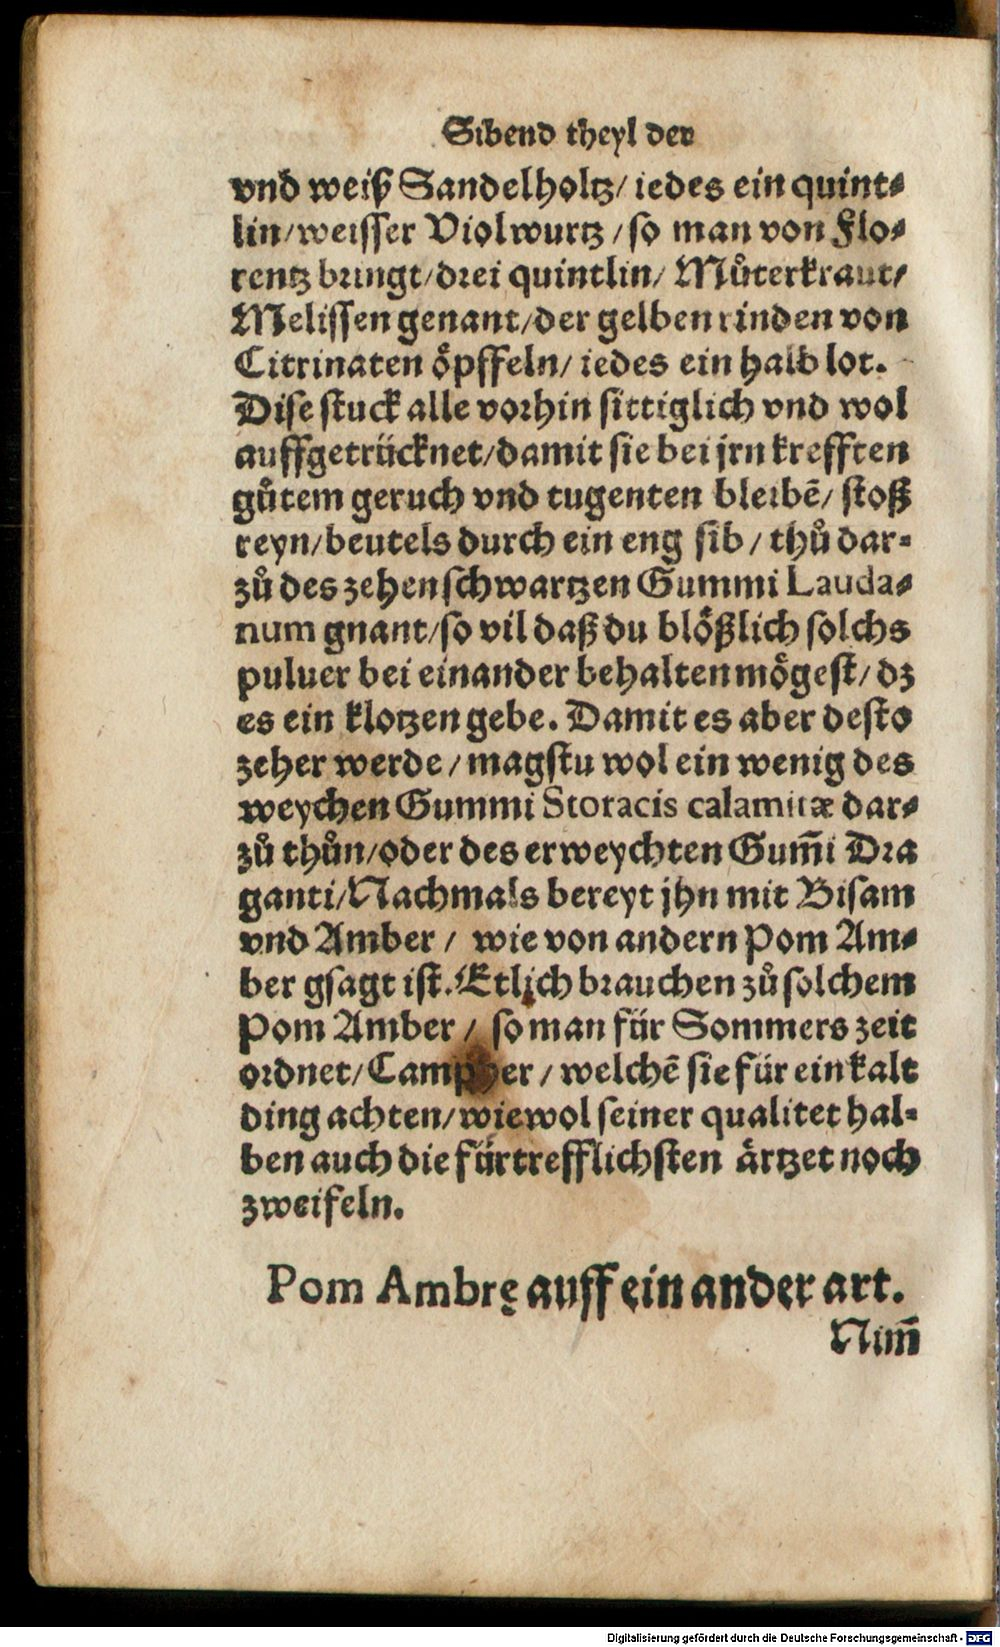 Sibend theyl der
vnd weiß Sandelholtz/ iedes ein quint⸗
lin/weisser Violwurtz/so man von Flo⸗
rentz bringt/drei quintlin/ Muͦterkraut/
Melissen genant/der gelben rinden von
Citrinaten oͤpffeln/ iedes ein halb lot.
Dise stuck alle vorhin sittiglich vnd wol
auffgetrücknet/damit sie bei jrn krefften
guͦtem geruch vnd tugenten bleibẽ/ stoß
reyn/beutels durch ein eng sib/ thuͦ dar⸗
zuͦ des zehen schwartzen Gummi Lauda⸗
num gnant/so vil daß du bloͤßlich solchs
puluer bei einander behalten moͤgest/ dz
es ein klotzen gebe. Damit es aber desto
zeher werde/magstu wol ein wenig des
weychen Gummi Storacis calamitæ dar⸗
zuͦ thuͦn/oder des erweychten Gum̃i Dra
ganti/Nachmals bereyt jhn mit Bisam
vnd Amber/ wie von andern Pom Am⸗
ber gsagt ist. Etlich brauchen zuͦ solchem
Pom Amber/ so man für Sommers zeit
ordnet/Campher/welchẽ sie für ein kalt
ding achten/wiewol seiner qualitet hal⸗
ben auch die fürtrefflichsten aͤrtzet noch
zweifeln.
Pom Ambrę auff ein ander art.
Nim̃
Digitalisierung gefördert durch die Deutsche Forschungsgemeinschaft - DFG